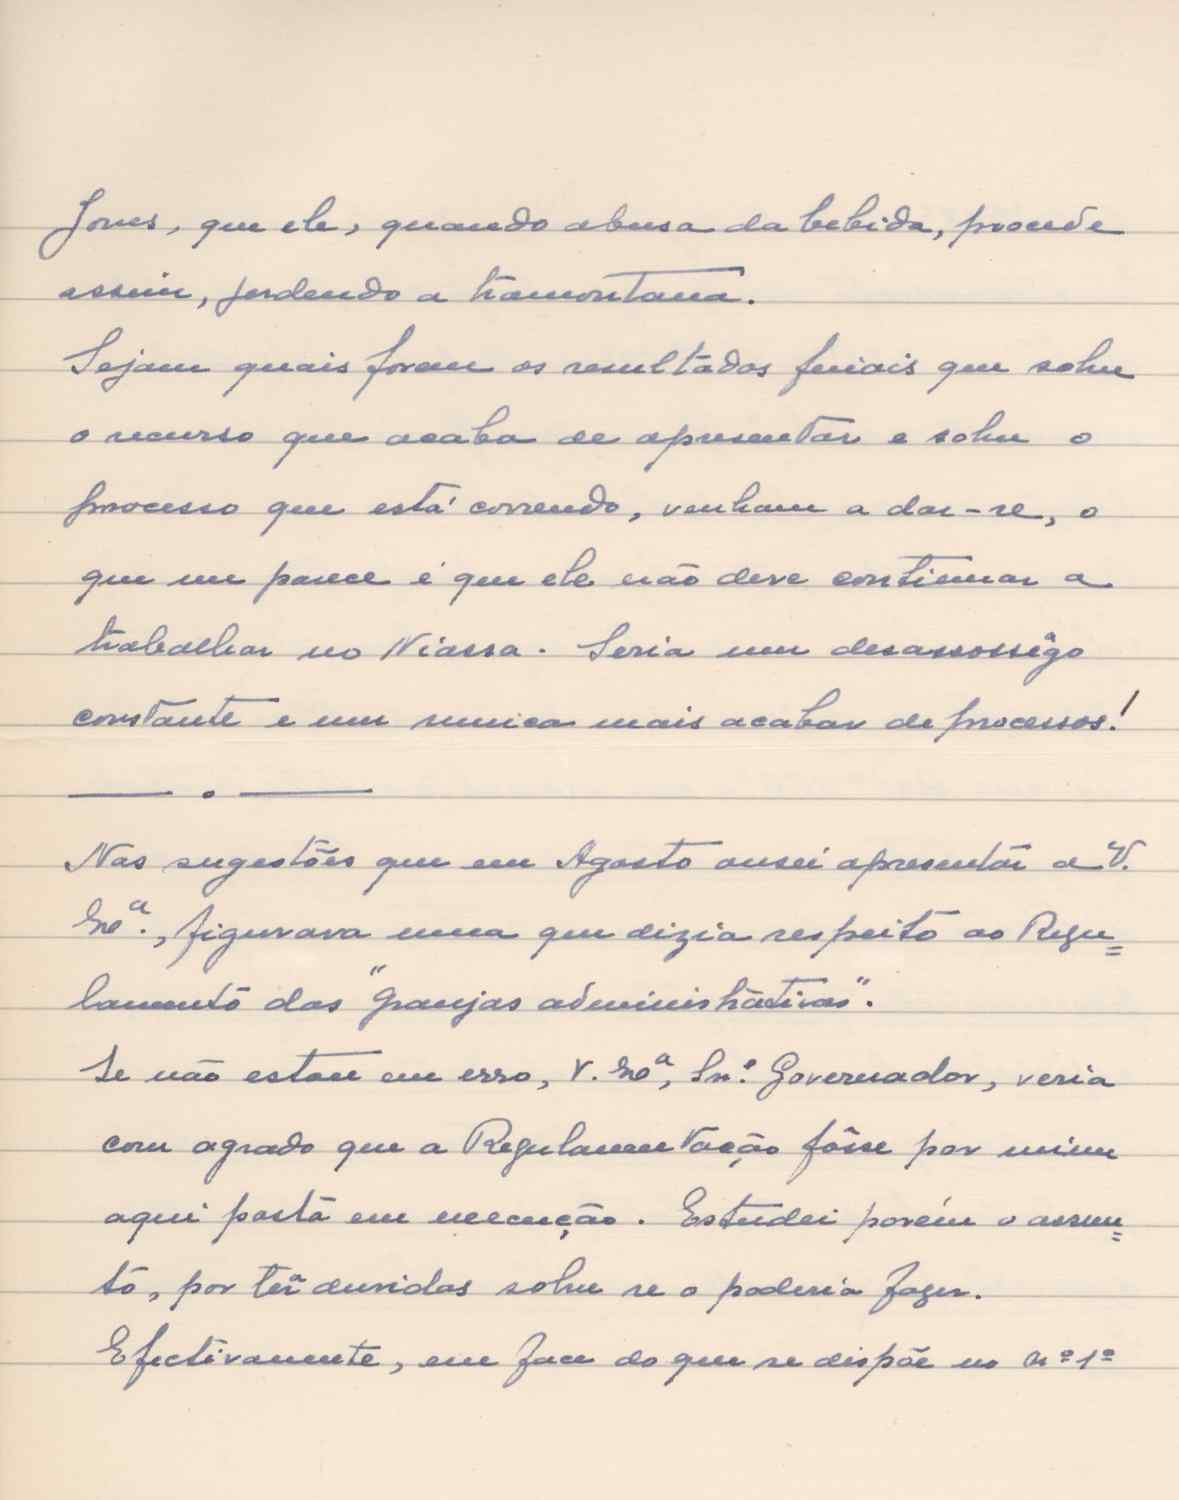 Jones, que ele, quando abusa da bebida, procede
assim, perdendo a tramontana.
Sejam quais forem os resultados finais que sobre
o recurso que acaba de apresentar e sobre o
processo que está correndo, venham a dar-se, o
que me parece é que ele não deve continuar a
trabalhar no Niassa. Seria um desassossêgo
constante e um nunca mais acabar de processos!
— . —
Nas sugestões que em Agosto ousei apresentar a V.
Exª., figurava uma que dizia respeito ao Regu=
lamento das "Granjas administrativas".
Se não estou em erro, V. Exª, Snr. Governador, veria
com agrado que a Regulamentação fôsse por mim
aqui posta em execução. Estudei porém o assun=
to, por ter duvidas sobre se o poderia fazer.
Efectivamente, em face do que se dispõe no nº 1º